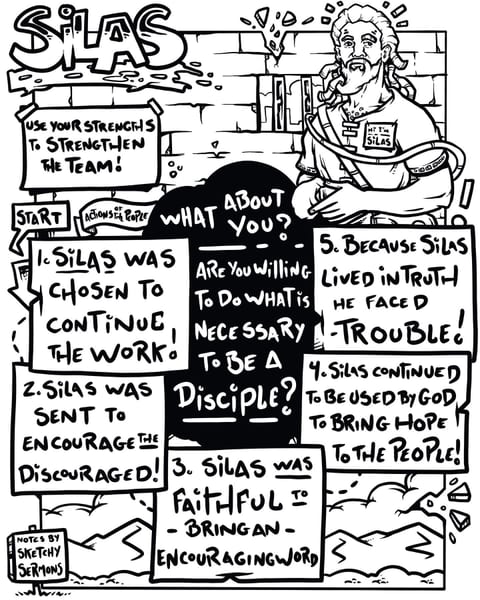 SILAS
USE YOUR STRENGTHS
TO STRENGTHEN
THE TEAM!
HI I'M
SILAS
START
ACTIONS OF GOD'S PEOPLE
WHAT ABOUT
YOU?
ARE YOU WILLING
TO DO WHAT IS
NECESSARY
TO BE A
DISCIPLE?
1. SILAS WAS
CHOSEN TO
CONTINUE
THE WORK!
2. SILAS WAS
SENT TO
ENCOURAGE THE
DISCOURAGED!
3. SILAS WAS
FAITHFUL TO
- BRING AN -
ENCOURAGING WORD
4. SILAS CONTINUED
TO BE USED BY GOD
TO BRING HOPE
TO THE PEOPLE!
5. BECAUSE SILAS
LIVED IN TRUTH
HE FACED
-TROUBLE!
NOTES BY
SKETCHY
SERMONS